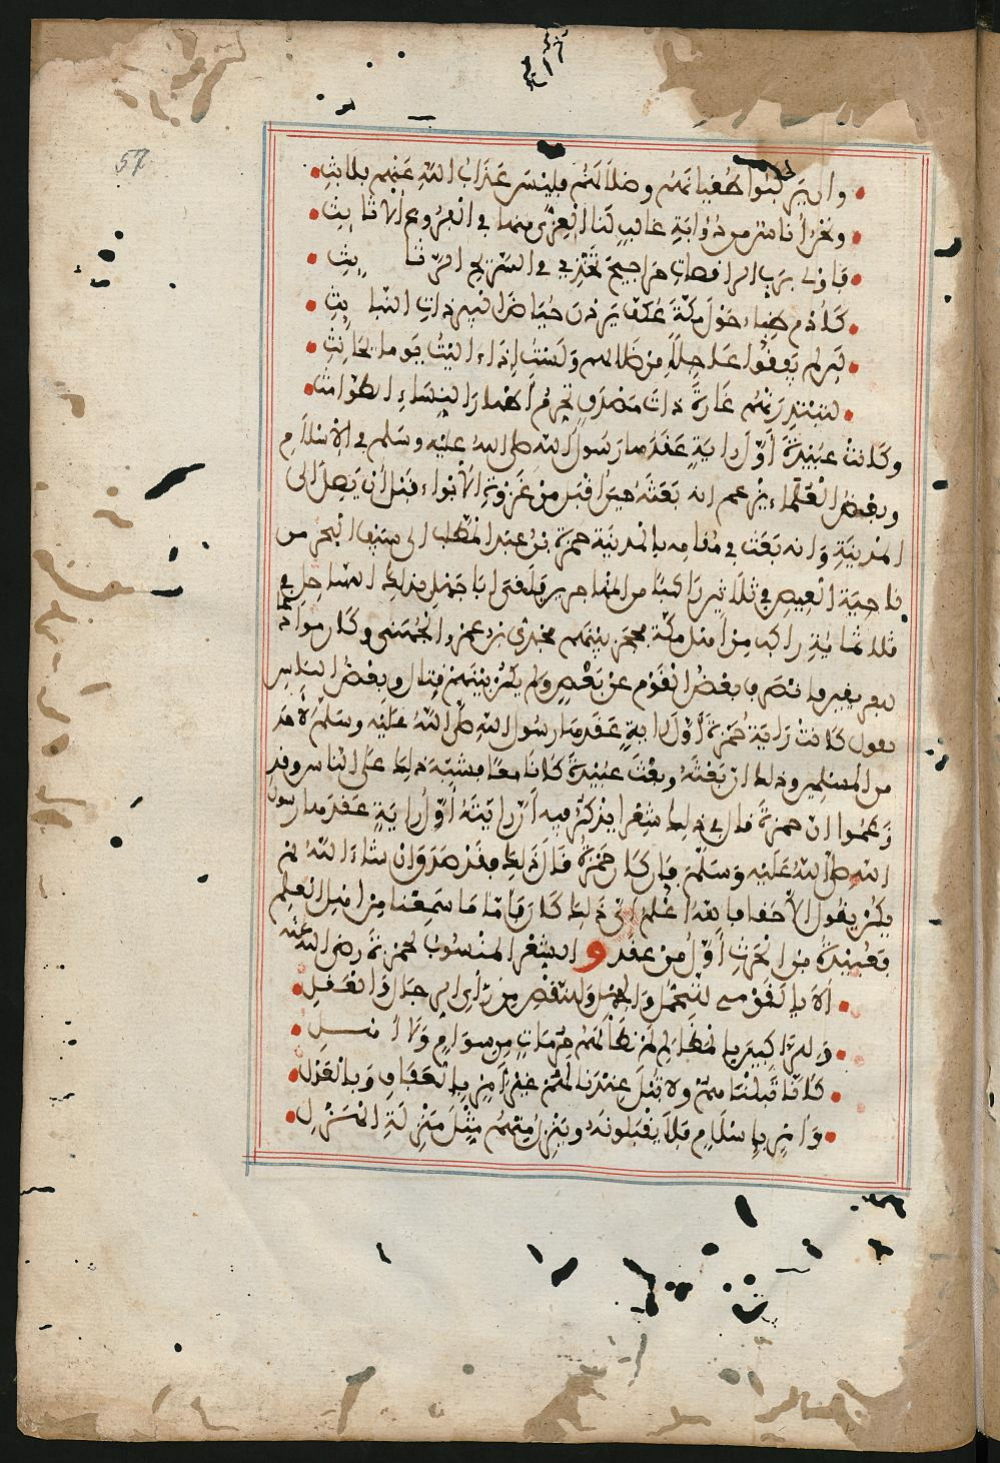 57
وان يركبوا طغيانهم وضلالهم فليس عذاب الله عنهم بلابث
ونحن أناس من ذؤابة غالب لنا العز منها في الفروع الأثايث
فأولى برب الراقصات عشية حراجيج تخدى في السريح الرثايث
كأدم ظباء حول مكة عكف يردن حياض البير ذات النبايث
لئن لم يفيقوا عاجلا من ضلالهم ولست إذا آليت يوما بحانث
لتبتدرنهم غارة ذات مصدق تحرم أطهار النساء الطوامث
وكانت عبيدة أول راية عقدها رسول الله صلى الله عليه وسلم في الإسلام
وبعض العلماء يزعم انه بعثه حين أقبل من غزوة الأبواء قبل أن يصل الى
المدينة وانه بعث في مقامه بالمدينة حمزة بن عبد المطلب الى سيف البحر من
ناحية العيص في ثلاثين راكبا من المهاجرين فلقى ابا جهل بذلك الساحل في
ثلاثماية راكب من أهل مكة فحجز بينهم مجدى بن عمرو الجهنى وكان موادعا
للفريقين فانصرف بعض القوم عن بعض ولم يكن بينهم قتال وبعض الناس
يقول كانت راية حمزة أول راية عقدها رسول الله صلى الله عليه وسلم لأحد
من المسلمين وذلك ان بعثه وبعث عبيدة كانا معا فشبه ذلك على الناس وقد
زعموا ان حمزة قال في ذلك شعرا يذكر فيه أن رايته أول راية عقدها رسول
الله صلى الله عليه وسلم فان كان حمزة قال ذلك فقد صدق وان شاء الله لم
يكن يقول الا حقا فالله أعلم أى ذلك كان فأما ما سمعنا من اهل العلم
فعبيدة بن الحرث أول من عقد له والشعر المنسوب لحمزة رضى الله عنه
ألا يا لقومى للتحلم والجهل وللنقص من رأى الرجال والعقل
وللراكبينا بالمظالم لم نطأ لهم حرمات من سوام ولا أهل
كأنا تبلناهم ولا تبل عندنا لهم غير أمر بالعفاف وبالعدل
وأمر باسلام فلا يقبلونه وينزل منهم مثل منزلة الهزل